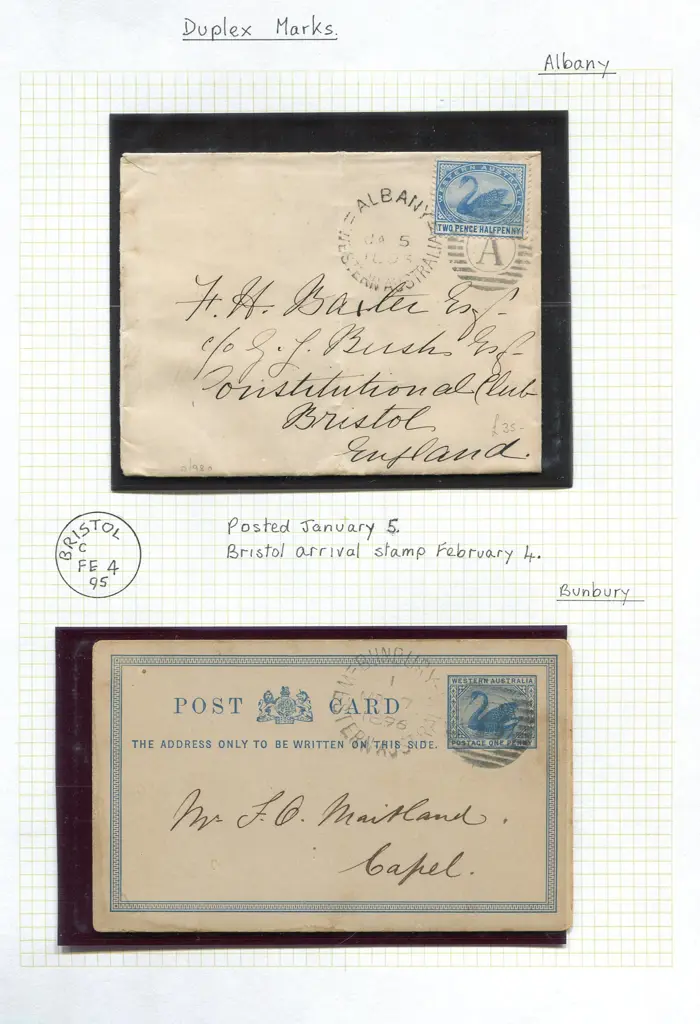 Duplex Marks.
Albany
ALBANY
JA 5
WESTERN AUSTRALIA
WESTERN AUSTRALIA
TWO PENCE HALFPENNY
A
F. H. Baxter Esq.
c/o G. J. Bush Esq.
Constitutional Club
Bristol
England.
£35-
BRISTOL
C
FE 4
95
Posted January 5.
Bristol arrival stamp February 4.
Bunbury
BUNBURY
1
WESTERN AUSTRALIA
POST CARD
THE ADDRESS ONLY TO BE WRITTEN ON THIS SIDE.
WESTERN AUSTRALIA
POSTAGE ONE PENNY
Mr Maitland.
Capel.